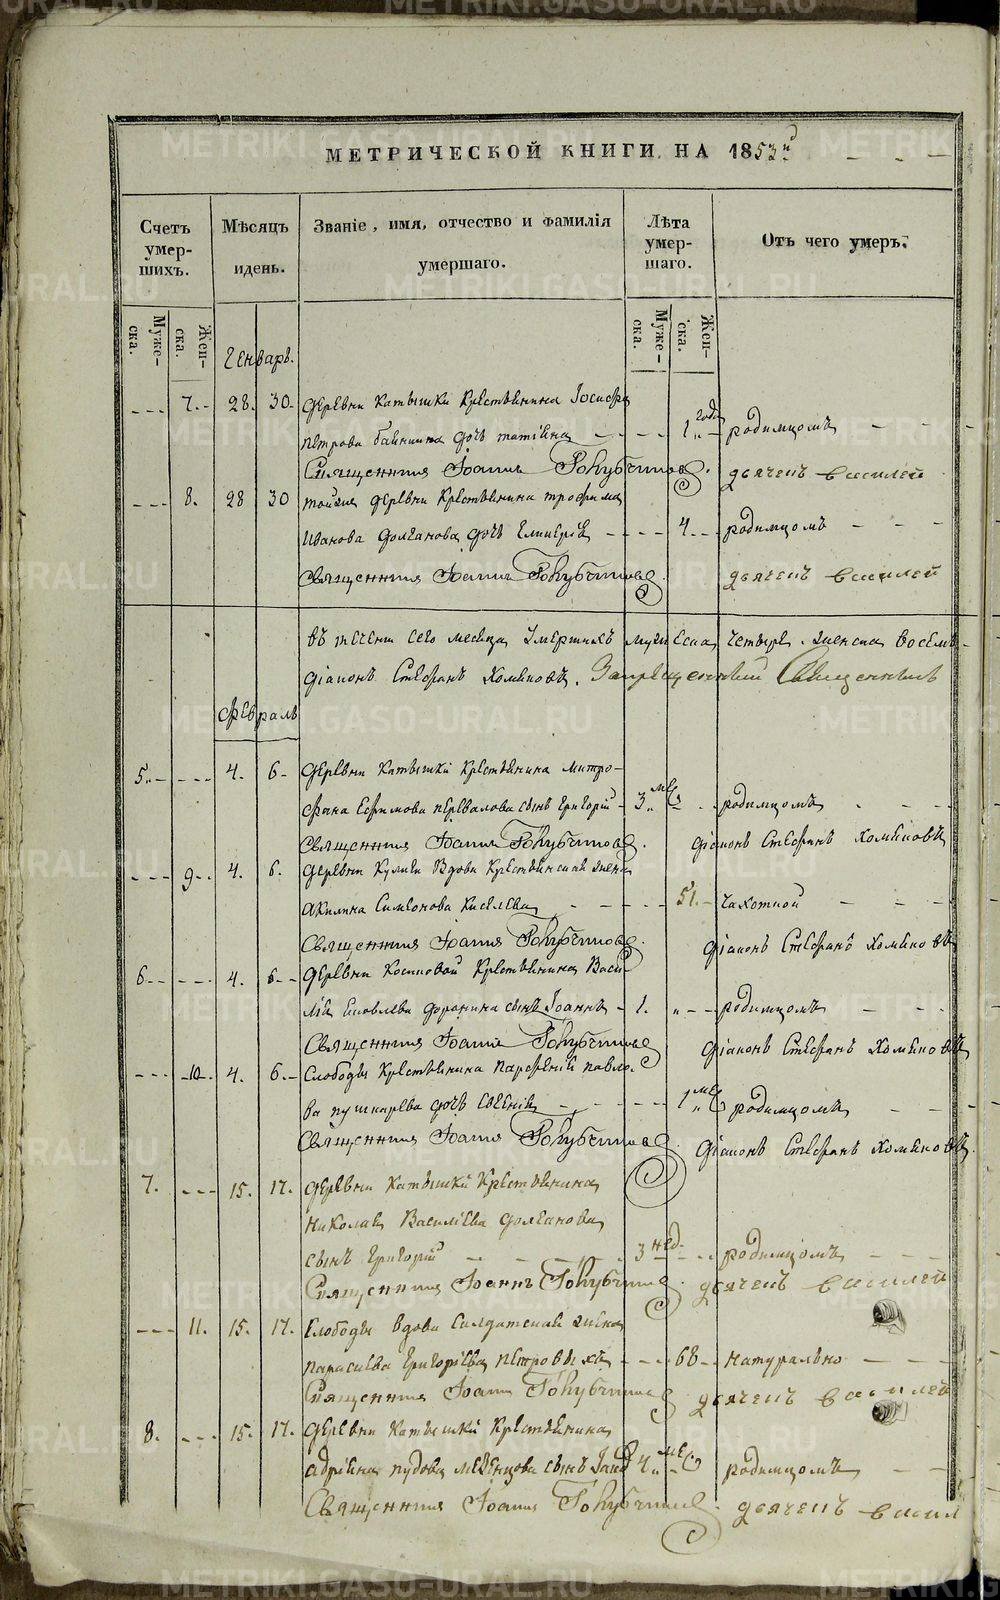 МЕТРИЧЕСКОЙ КНИГИ НА 1853й
Счетъ умер-шихъ.
Мѣсяцъ идень.
Званіе, имя, отчество и фамилія умершаго.
Лѣта умер-шаго.
Отъ чего умеръ.
Муже-ска.
Жен-ска.
Муже-ска.
Жен-ска.
Генварь.
7. 28. 30. деревни Катышки Крестьянина Іосифа
Петрова дочь татіана 1 года родимцомъ
Священникъ Іоаннъ дьячекъ василей
8. 28 30 тойжа деревни Крестьянина трофима
Иванова Долганова дочь 4 родимцомъ
Священникъ Іоаннъ дьячекъ василей
въ течени сего месяца умершихъ мужеска четыре женска восемь
діаконъ Стефанъ Хомяковъ. Запрещенный Священникъ
февраль
5. 4. 6 деревни Катышки Крестьянина митро-
фана Ефимова перевалова сынъ григорій 3 мес родимцомъ
Священникъ Іоаннъ діаконъ Стефанъ Хомяковъ
9. 4. 6. деревни Вдова Крестьянская жена
Акилина Симеонова Киселева 51. Чахоткой
Священникъ Іоаннъ діаконъ Стефанъ Хомяковъ
6 4. 6 деревни Косиковой Крестьянина Васи
лья Яковлева доронина сынъ Іоаннъ 1. родимцомъ
Священникъ Іоаннъ діаконъ Стефанъ Хомяковъ
10. 4. 6. Слободы Крестьянина Парфенія павло-
ва пушкарева дочь Евгенія 1 мес родимцомъ
Священникъ Іоаннъ діаконъ Стефанъ Хомяковъ
7. 15. 17. деревни Катышки Крестьянина
николая Василіева долганова
сынъ григорій 3 нед. родимцомъ
Священникъ Іоаннъ дьячекъ василей
11. 15. 17. Слободы вдова Солдатская жена
параскева григоріева петровыхъ 68 натурально
Священникъ Іоаннъ дьячекъ василей
8. 15. 17. деревни Катышки Крестьянина
адріана пудова сынъ 4 мес родимцомъ
Священникъ Іоаннъ дьячекъ васил
METRIKI.GASO-URAL.RU